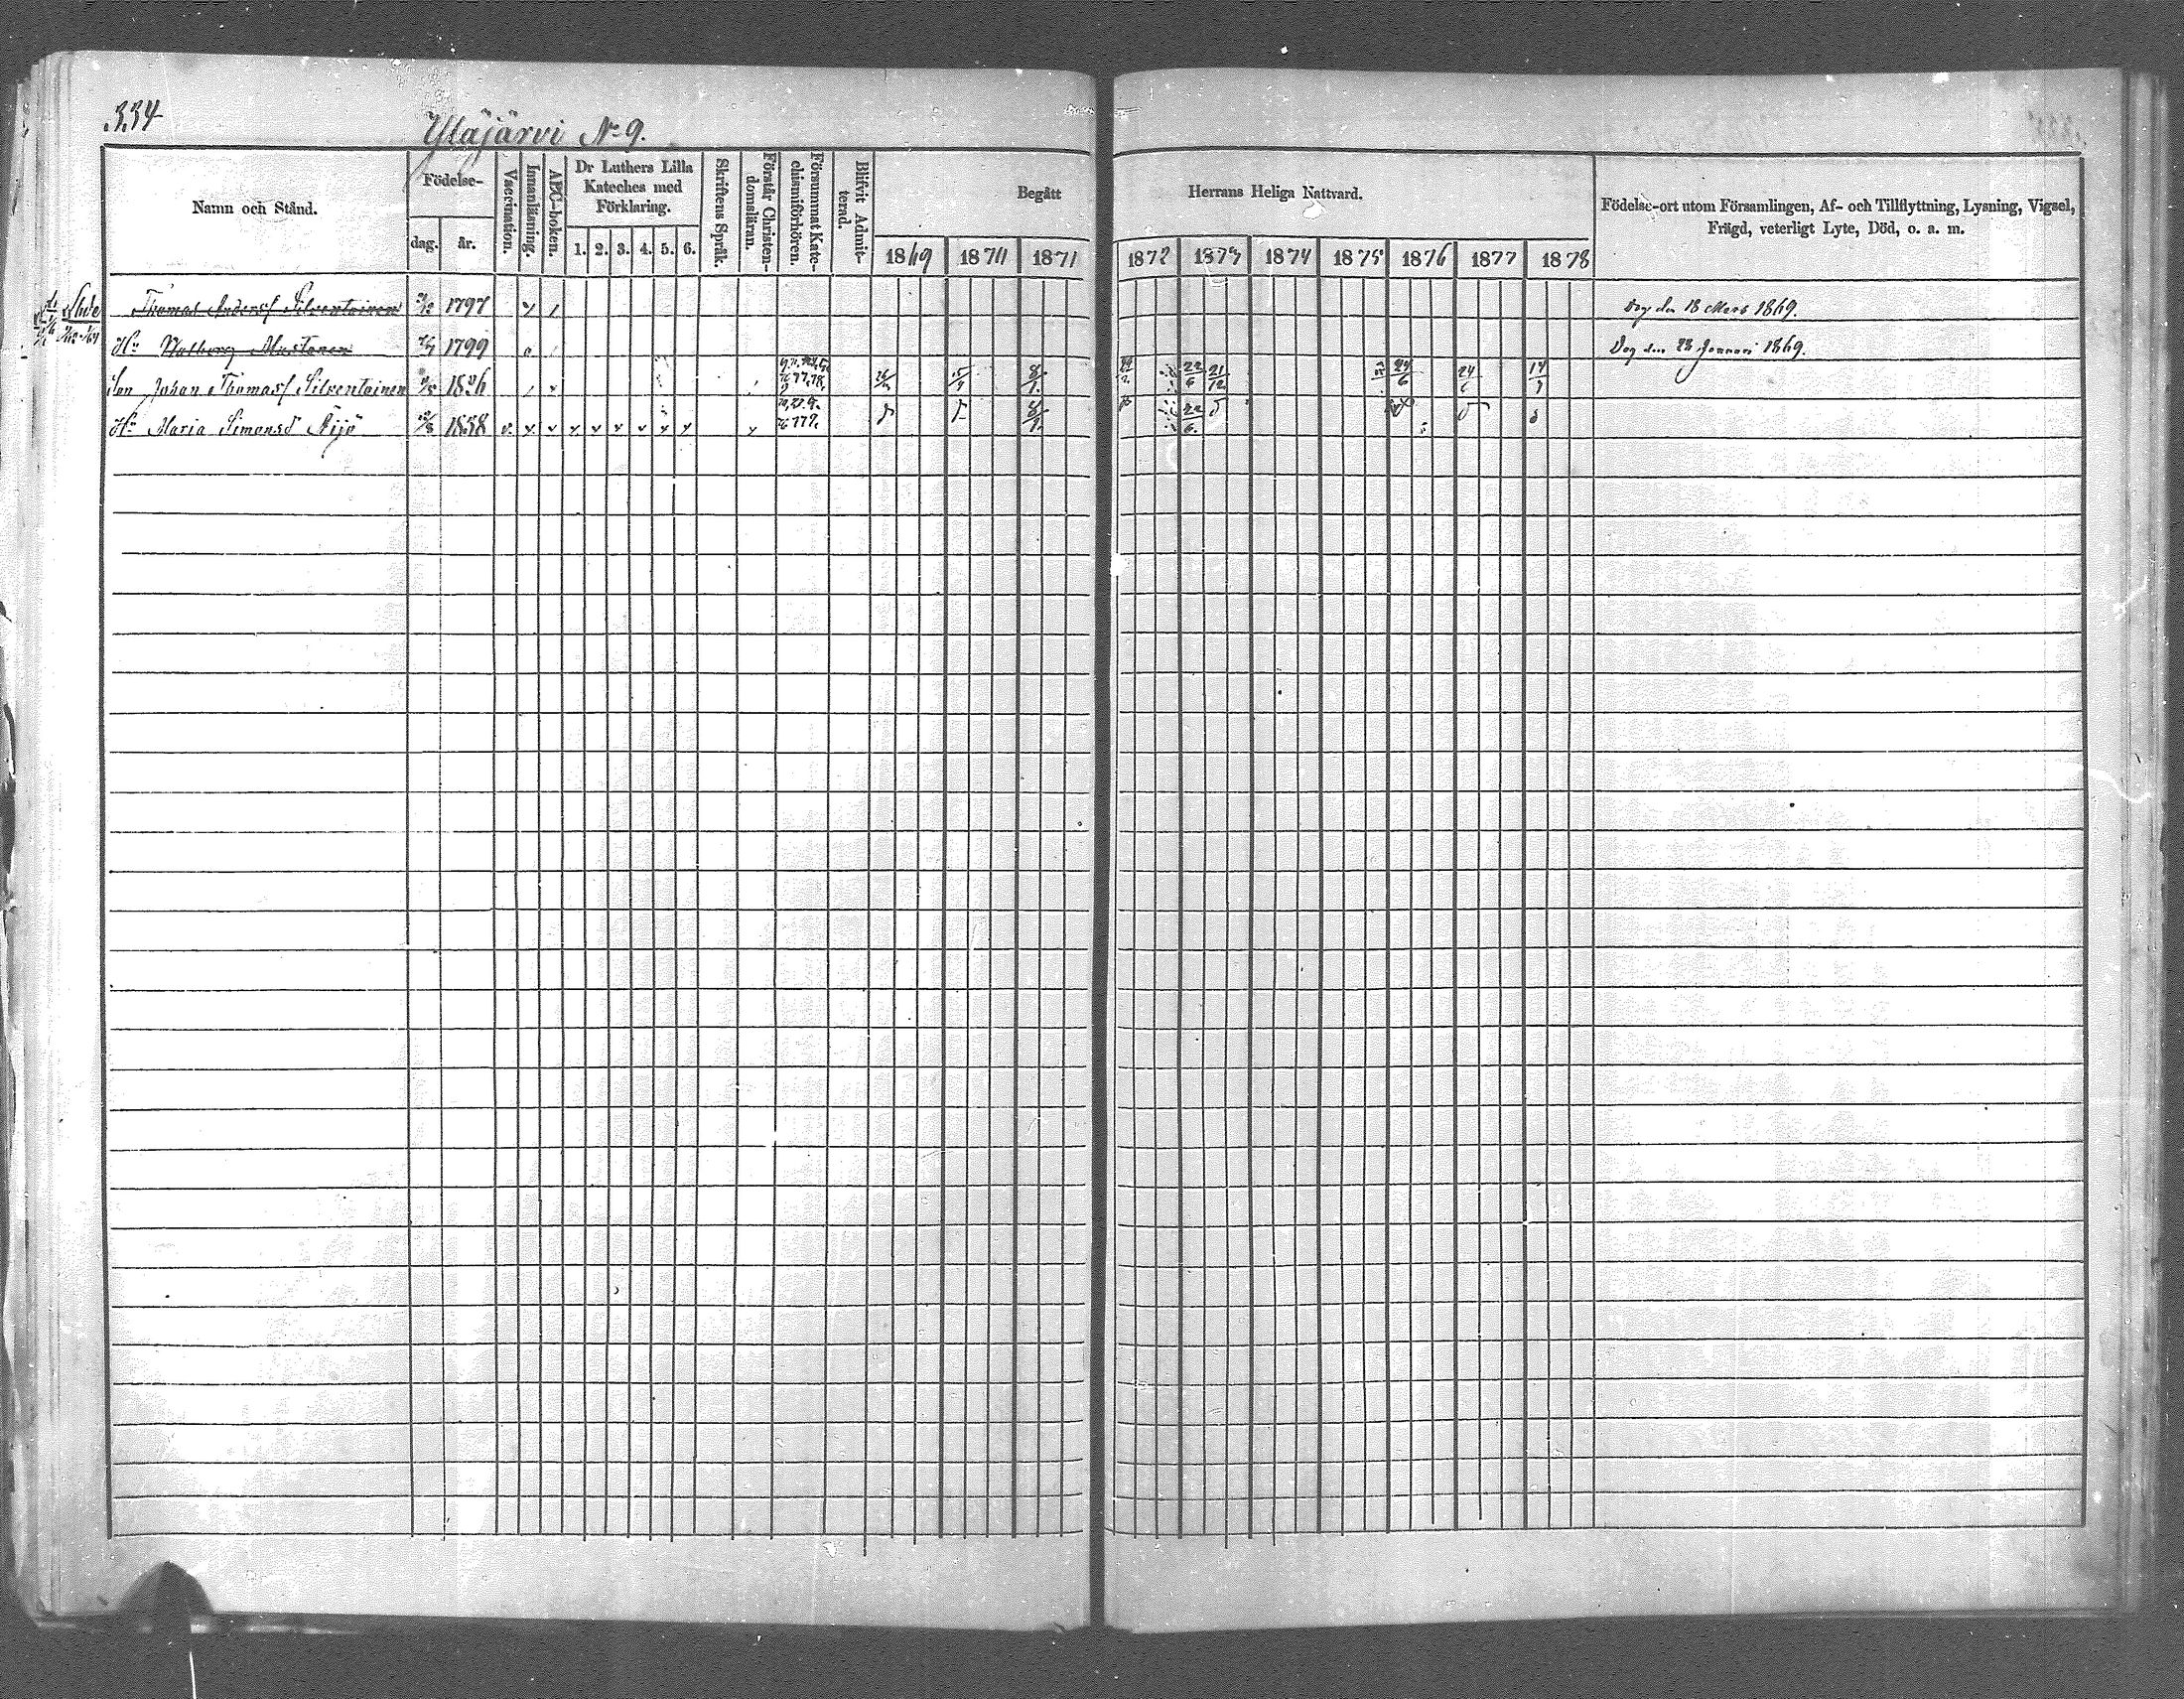 334
Yläjärvi No 9.
Namn och Stånd.
Födelse-
dag.
år.
Vaccination.
Innanläsning.
ABC-boken.
Dr Luthers Lilla Kateches med Förklaring.
1. 2. 3. 4. 5. 6.
Skriftens Språk.
Förstår Christen-domsläran.
Försummat Kate-chismiförhören.
Blifvit Admit-terad.
Begått Herrans Heliga Nattvard.
1869 1870 1871 1872 1873 1874 1875 1876 1877 1878
Födelse-ort utom Församlingen, Af- och Tillflyttning, Lysning, Vigsel,
Frägd, veterligt Lyte, Död, o. a. m.
Thomas Andersf Silventoinen 1797 Dog den 18 Mars 1869.
Hu Walborg Mustonen 1799 Dog den 28 Januari 1869.
Son Johan Thomasf Silventoinen 8/1 22/6 21/12 24/6 24/6
Hu Maria Simonsd Äijö 8/1 22/6